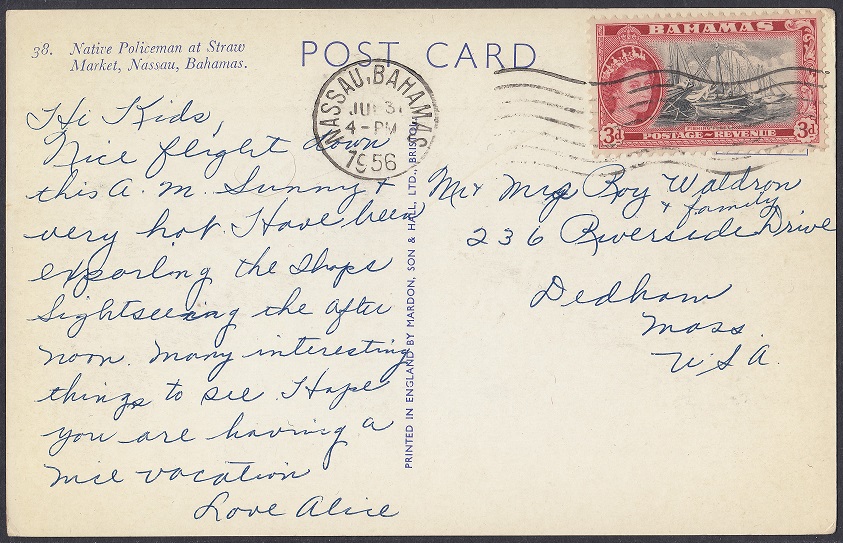 38. Native Policeman at Straw
Market, Nassau, Bahamas.
POST CARD
NASSAU, BAHAMAS
JU 31
4-PM
1956
BAHAMAS
3d POSTAGE & REVENUE 3d
PRINTED IN ENGLAND BY MARDON, SON & HALL, LTD., BRISTOL
Hi Kids,
Nice flight down
this A.M. Sunny &
very hot. Have been
exporling the shops
Sightseeing the after
noon. Many interesting
things to see. I Hope
you are having a
nice vacation
Love Alice
Mr & Mrs Roy Waldron
& family
236 Riverside Drive
Dedham
Mass.
U.S.A.